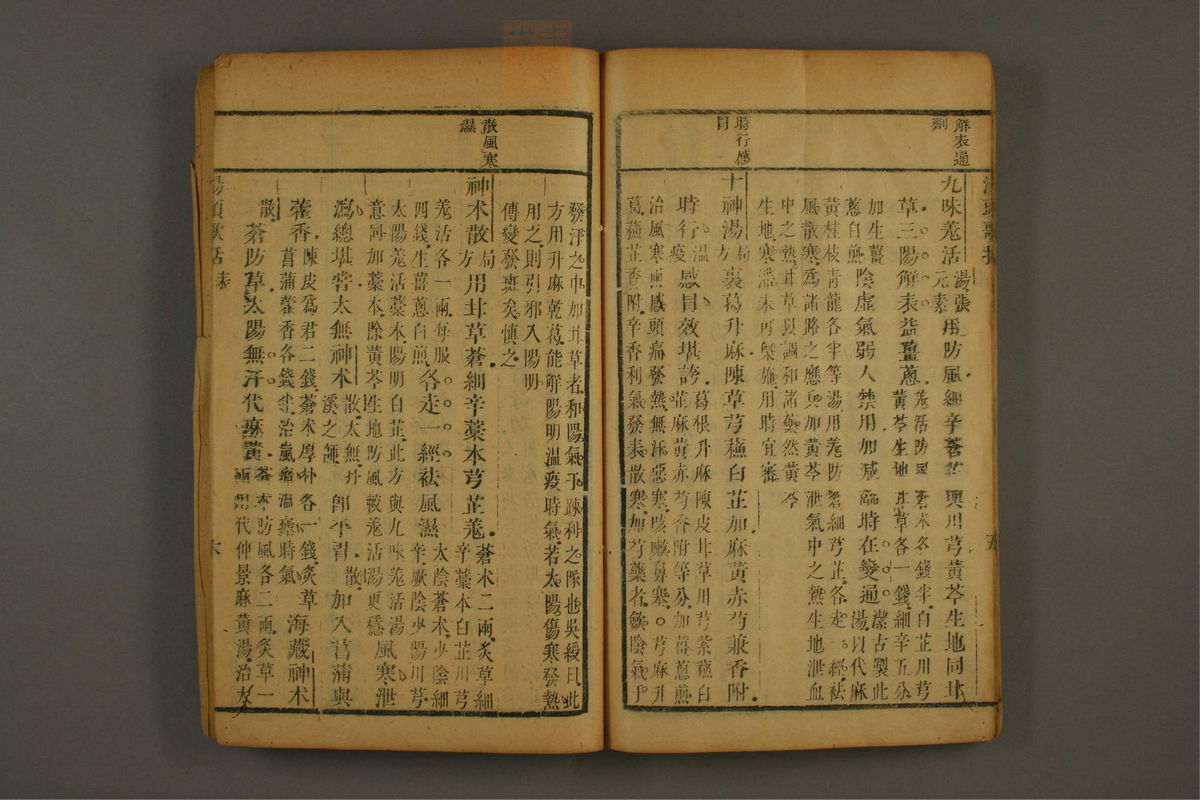 解表通
劑
九味羌活湯張元素用防風細辛蒼芷與川芎黃芩生地同甘
草三陽解表益薑蔥羌活防風蒼朮各錢半白芷川芎
黃芩生地甘草各一錢細辛五分
加生薑
蔥白煎陰虛氣弱人禁用加減臨時在變通潔古製此
湯以代麻
黃桂枝青龍各半等湯用羌防蒼細芎芷各走一經祛
風散寒為諸路之應兵加黃芩泄氣中之熱生地泄血
中之熱甘草以調和諸藥然黃芩
生地寒滯未可槩施用時宜審
時行感
冒
十神湯局方裏葛升麻陳草芎蘇白芷加麻黃赤芍兼香附
時行溫疫感冒效堪誇葛根升麻陳皮甘草川芎紫蘇白
芷麻黃赤芍香附等分加薑蔥煎
治風寒兩感頭痛發熱無汗惡寒咳嗽鼻塞○芎麻升
葛蘇芷香附辛香利氣發表散寒加芍藥者斂陰氣于
發汗之中加甘草者和陽氣于疎利之隊也吳綬曰此
方用升麻乾葛能解陽明溫疫時氣若太陽傷寒發熱
用之則引邪入陽明
傳變發斑矣慎之
散風寒
濕
神朮散局方用甘草蒼細辛藁本芎芷羌蒼朮二兩炙草細
辛藁本白芷川芎
羌活各一兩每服
四錢生薑蔥白煎各走一經祛風濕太陰蒼朮少陰細
辛厥陰少陽川芎
太陽羌活藁本陽明白芷此方與九味羌活湯
意同加藁本除黃芩生地防風較羌活湯更穩風寒泄
瀉總堪嘗太無神朮散太無丹
溪之師即平胃散加入菖蒲與
藿香陳皮為君二錢蒼朮厚朴各一錢炙草
菖蒲藿香各錢半治嵐瘴瘟瘧時氣海藏神朮
散蒼防草太陽無汗代麻黃蒼朮防風各二兩炙草一
兩用代仲景麻黃湯治太